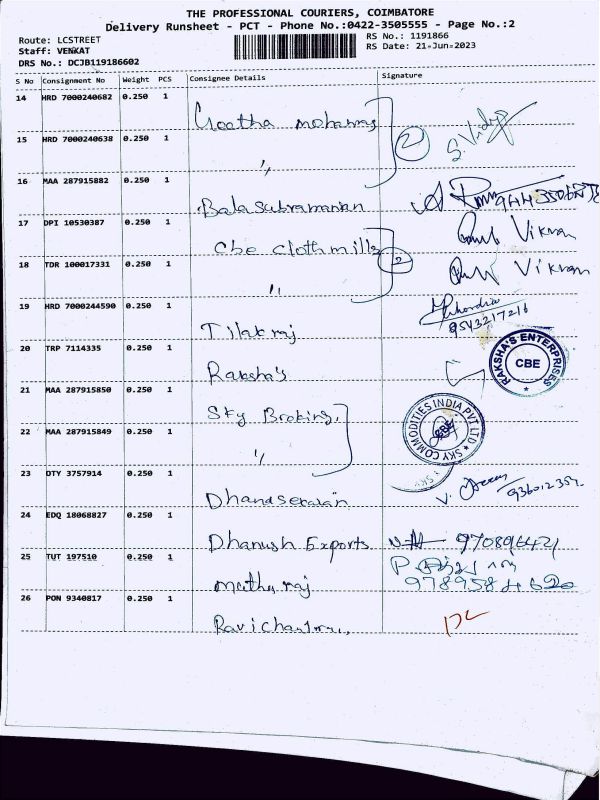 THE PROFESSIONAL COURIERS, COIMBATORE
Delivery Runsheet - PCT - Phone No.:0422-3505555 - Page No.:2
Route: LCSTREET
RS No.: 1191866
Staff: VENKAT
RS Date: 21-Jun-2023
DRS No.: DCJB119186602
S No Consignment No Weight PCS Consignee Details Signature
14 HRD 7000240682 0.250 1
Geetha mohanraj
2
15 HRD 7000240638 0.250 1
"
S. Vidya
16 MAA 287915882 0.250 1
Balasubramanian
17 DPI 10530387 0.250 1
Cbe cloth mills
Vikram
2
18 TDR 100017331 0.250 1
"
Vikram
19 HRD 7000244590 0.250 1
Tilak raj
9543217216
20 TRP 7114335 0.250 1
Raksha's
RAKSHA'S ENTERPRISES CBE
21 MAA 287915850 0.250 1
Sky Broking,
SKY COMMODITIES INDIA PVT LTD CBE
22 MAA 287915849 0.250 1
"
SKY
23 OTY 3757914 0.250 1
Dhanasekaran
24 EDQ 18068827 0.250 1
Dhanush Exports
25 TUT 197510 0.250 1
Mathuraj
26 PON 9340817 0.250 1